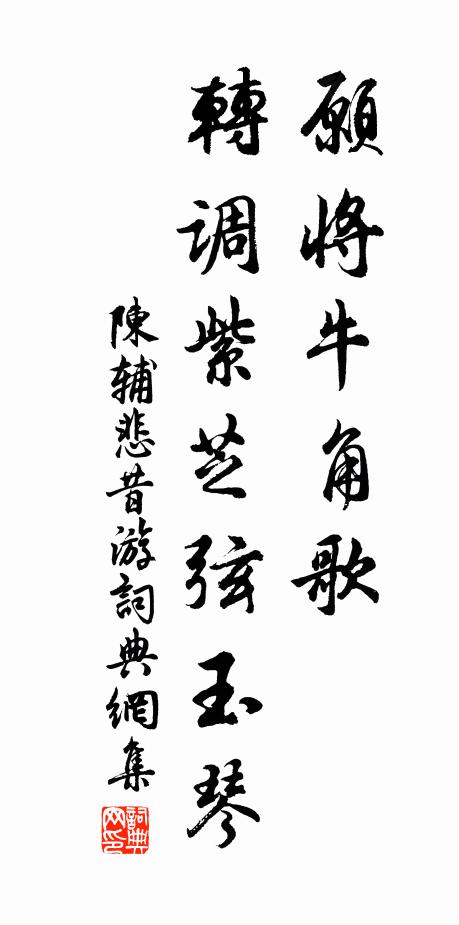 願將牛角歌
轉調紫芝弦玉琴
陳輔悲昔游詞典網集
詞典网印